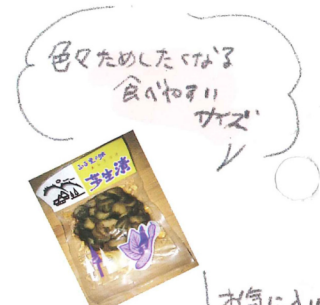 色々ためしたくなる
食べやすい
サイズ
芝生漬
お気に入